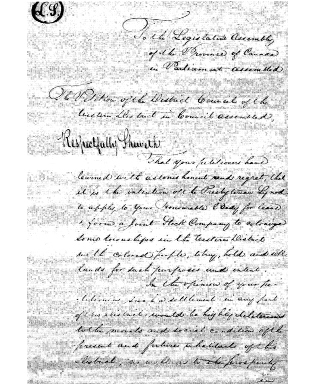 L.S.
To the Legislative Assembly
of the Province of Canada
in Parliament assembled
The Petition of the District Council of the
Western District in Council assembled,
Respectfully Sheweth
That your petitioners have
learned with astonishment and regret, that
it is the intention of the Presbyterian Synod
to apply to Your Honorable Body for leave
to form a Joint Stock Company to
some townships in the Western District
with colored people, to buy, hold and sell
lands for such purposes and intent.
In the opinion of your
petitioners such a settlement in any part
of this District would be highly deleterious
to the morals and social condition of the
present and future inhabitants of this
District, as well as to its prosperity
in